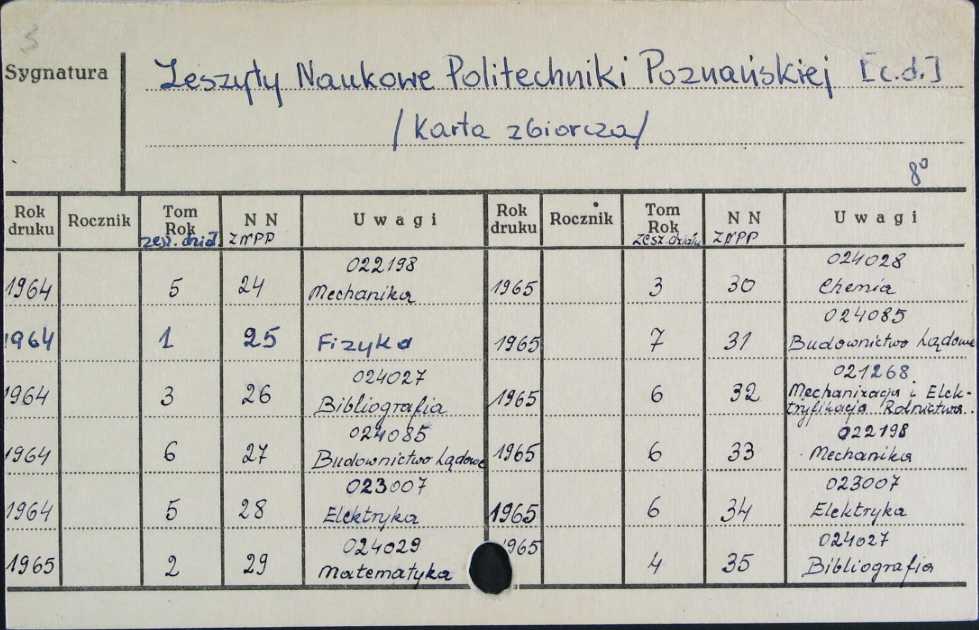 3
Sygnatura
Zeszyty Naukowe Politechniki Poznańskiej [c.d.]
/Karta zbiorcza/
8°
Rok druku Rocznik Tom Rok zesz. dział. NN ZNPP Uwagi Rok druku Rocznik Tom Rok zesz. działu NN ZNPP Uwagi
1964 5 24 022198 Mechanika 1965 3 30 024028 Chemia
1964 1 25 Fizyka 1965 7 31 024085 Budownictwo Lądowe
1964 3 26 024027 Bibliografia 1965 6 32 021268 Mechanizacja i Elek-
tryfikacja Rolnictwa.
1964 6 27 024085 Budownictwo Lądowe 1965 6 33 022198 Mechanika
1964 5 28 023007 Elektryka 1965 6 34 023007 Elektryka
1965 2 29 024029 Matematyka 1965 4 35 024027 Bibliografia